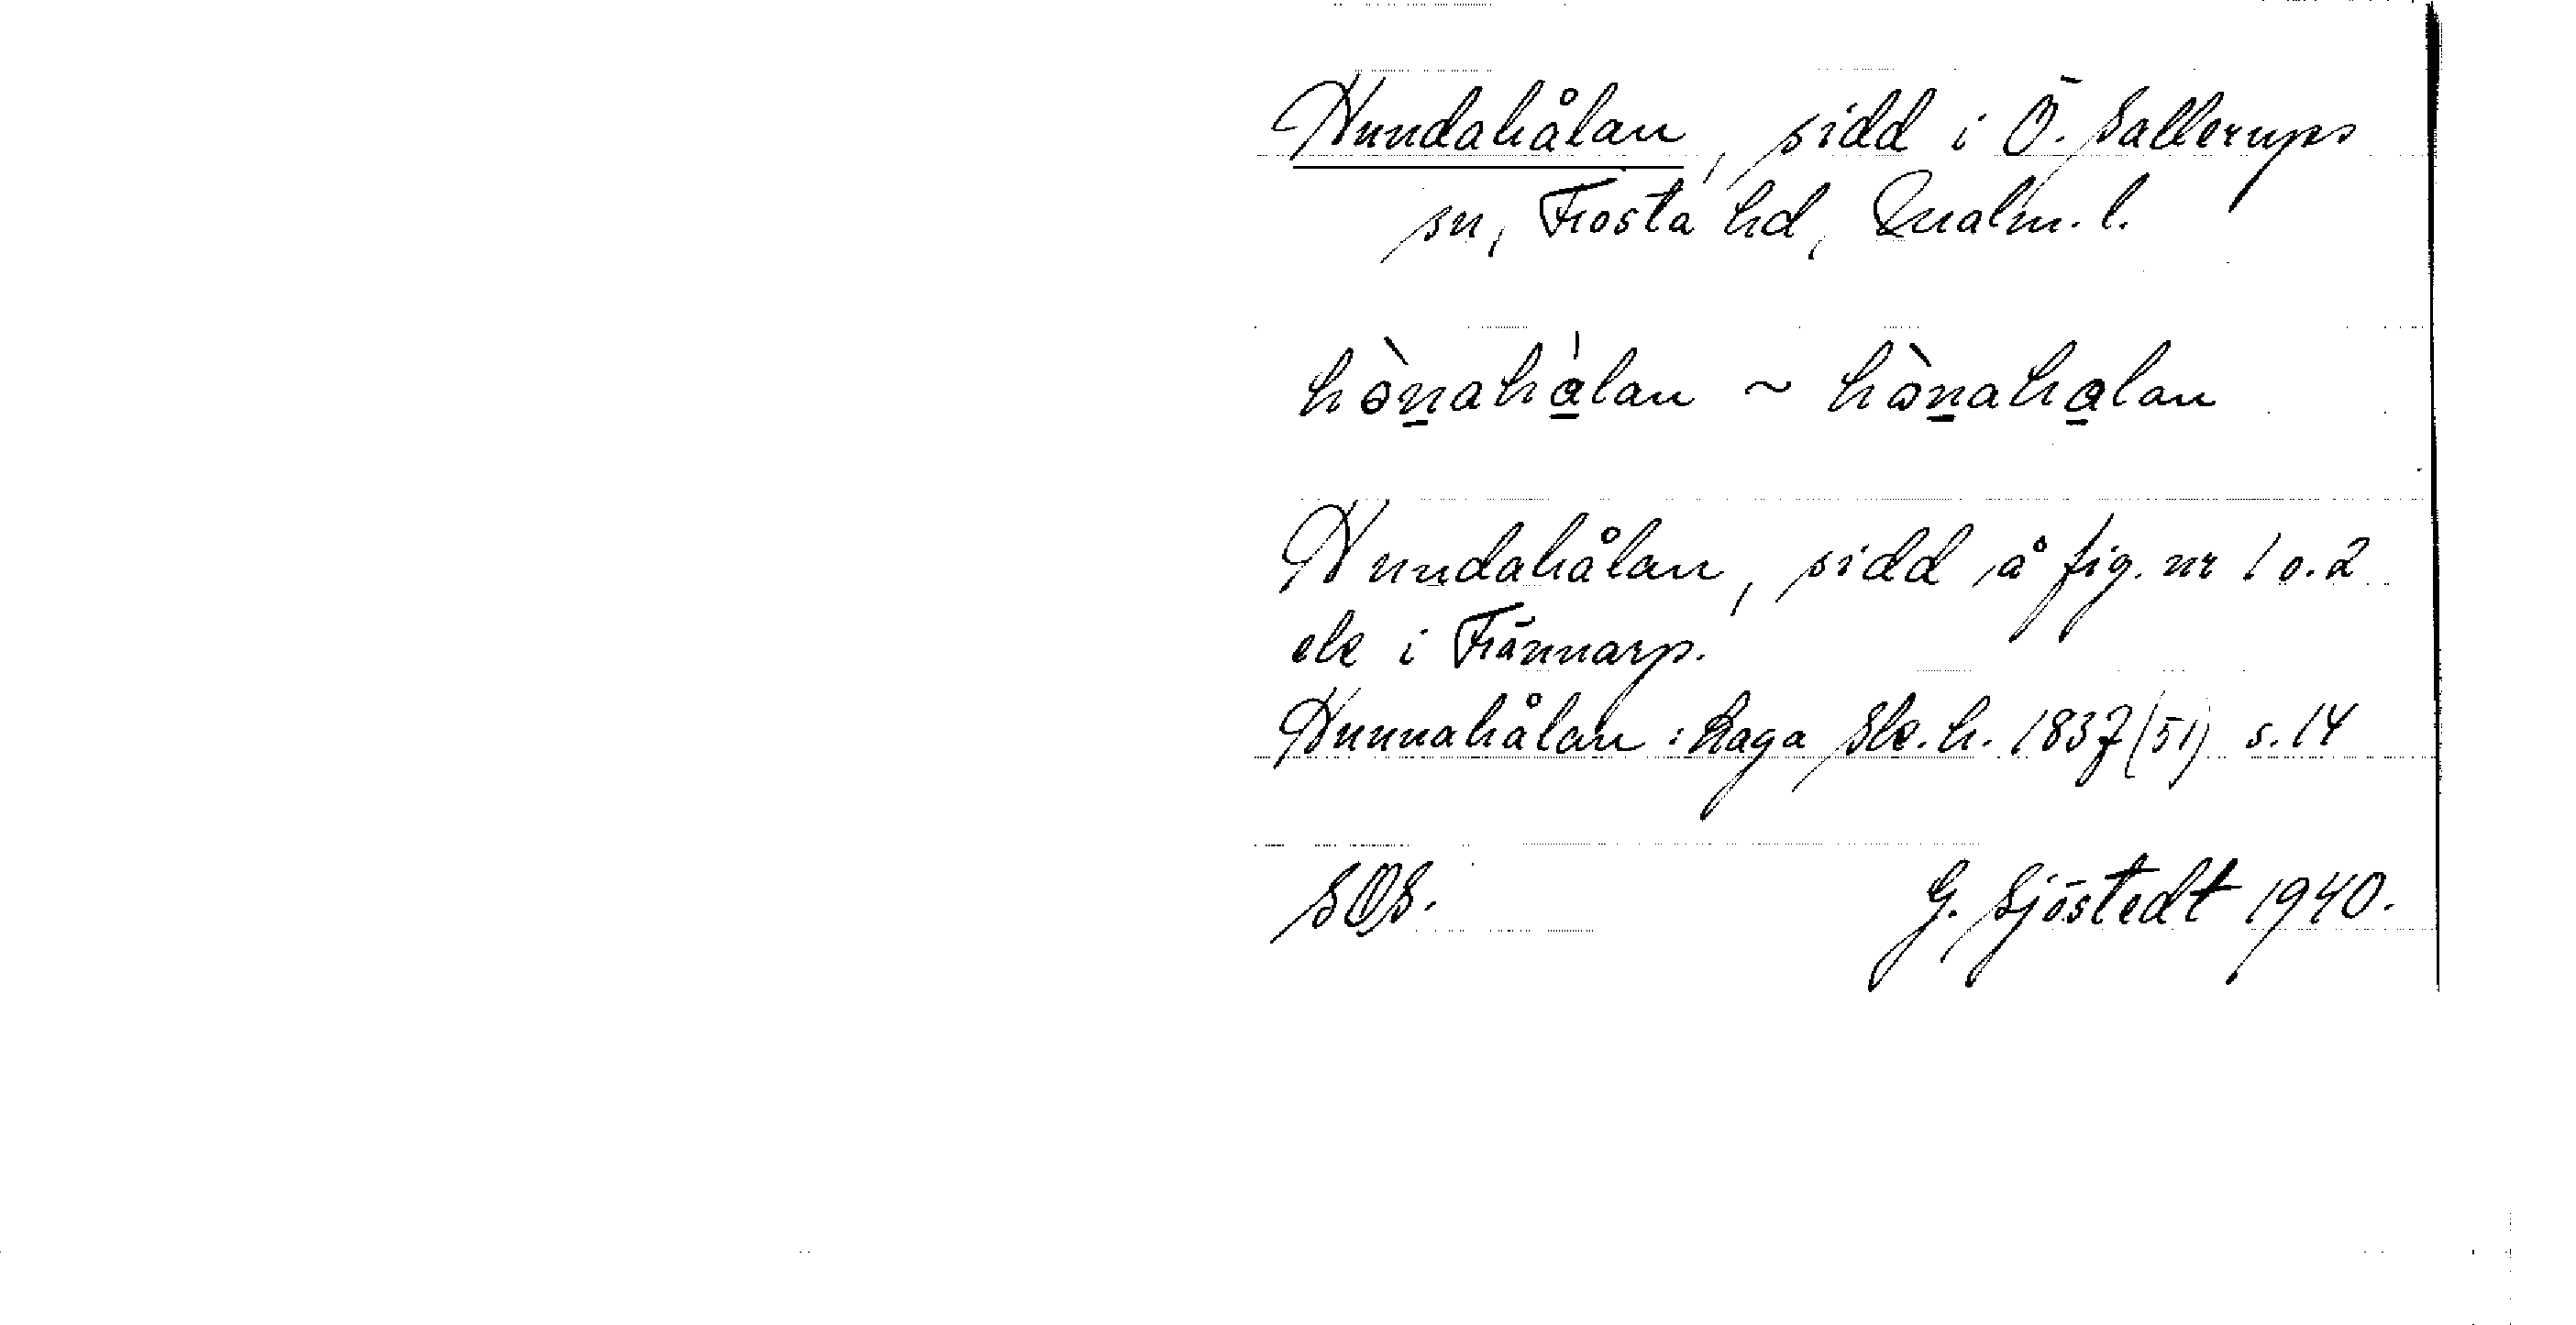 Hundahålan, sidd i Ö. Sallerups
sn, Frosta hd, Malm. l.
hònahàlan ~ hònahalan
Hundahålan, sidd å fig. nr 1 o. 2
ek i Frännarp.
Hunnahålan: Laga sk. h. 1837 (51) s. 14
SOS.
G. Sjöstedt 1940.